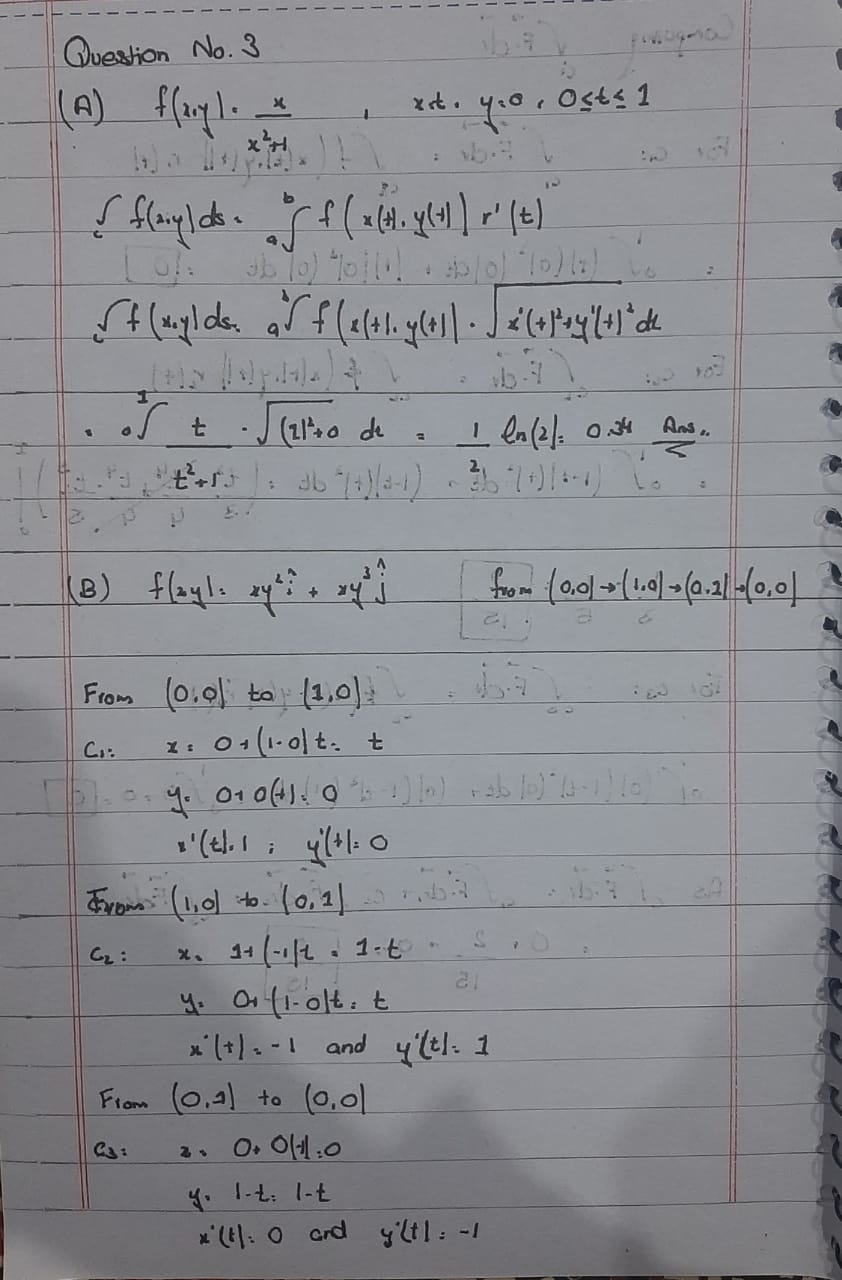 Question No. 3
(A) f(x,y) = x/(x²+1) , x=t, y=0, 0≤t≤1
∫c f(x,y)ds = a∫b f(x(t), y(t)) r'(t)
∫c f(x,y)ds = a∫b f(x(t), y(t)) · √(x'(t)²+y'(t)²) dt
= 0∫1 t/(t²+1) · √((1)²+0) dt = 1/2 ln(2) = 0.34 Ans..
(B) f(xy) = xy² î + xy³ ĵ from (0,0)→(1,0)→(0,1)→(0,0)
From (0,0) to (1,0)
C₁: x = 0+(1-0)t = t
y = 0+0(t) = 0
x'(t)=1 ; y'(t)=0
From (1,0) to (0,1)
C₂: x = 1+(-1)t = 1-t
y = 0+(1-0)t = t
x'(t) = -1 and y'(t) = 1
From (0,1) to (0,0)
C₃: x = 0+0(t)=0
y = 1-t = 1-t
x'(t) = 0 and y'(t) = -1